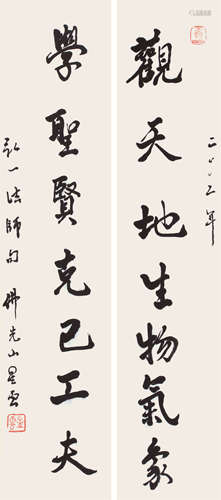 觀天地生物氣象
二〇〇三年
學聖賢克己工夫
弘一法師句 佛光山星雲